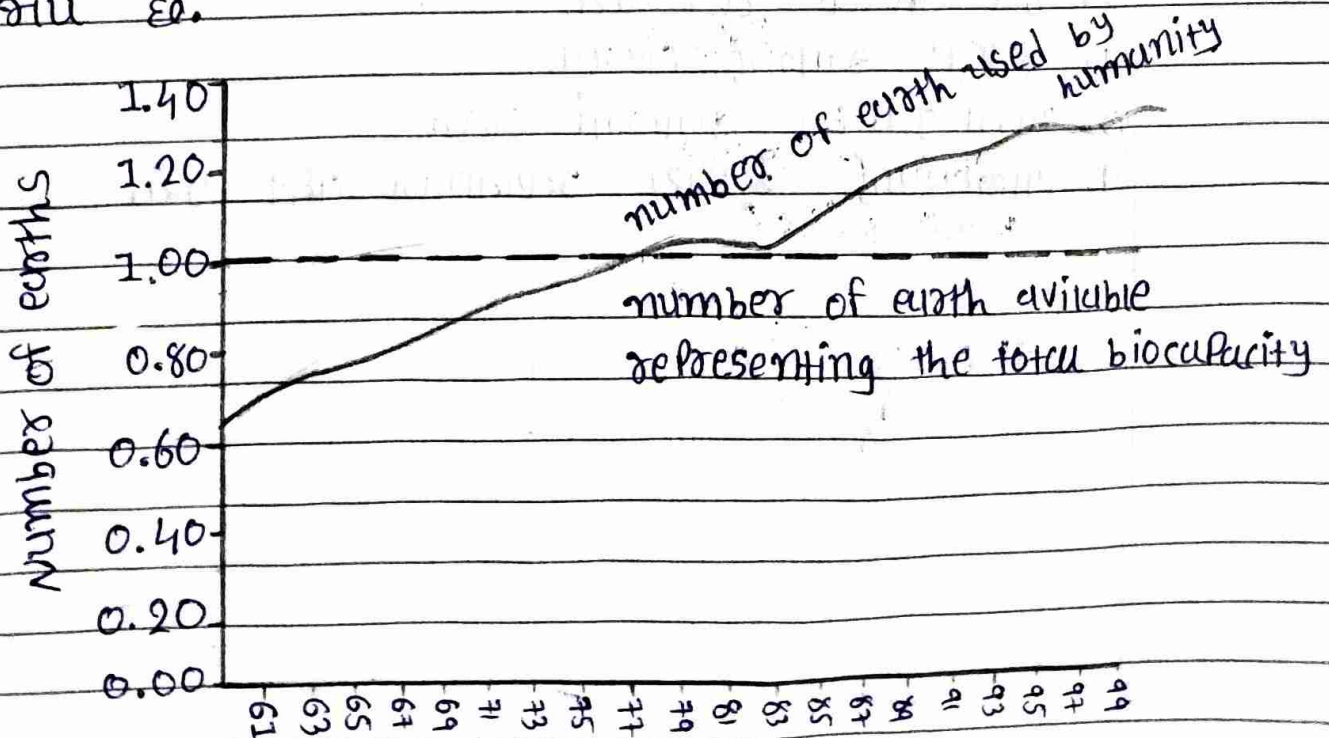 number of earth used by
humanity
1.40
1.20
1.00
0.80
0.60
0.40
0.20
0.00
Number of earths
number of earth avilable
representing the total biocapacity
61 63 65 67 69 71 73 75 77 79 81 83 85 87 89 91 93 95 97 99